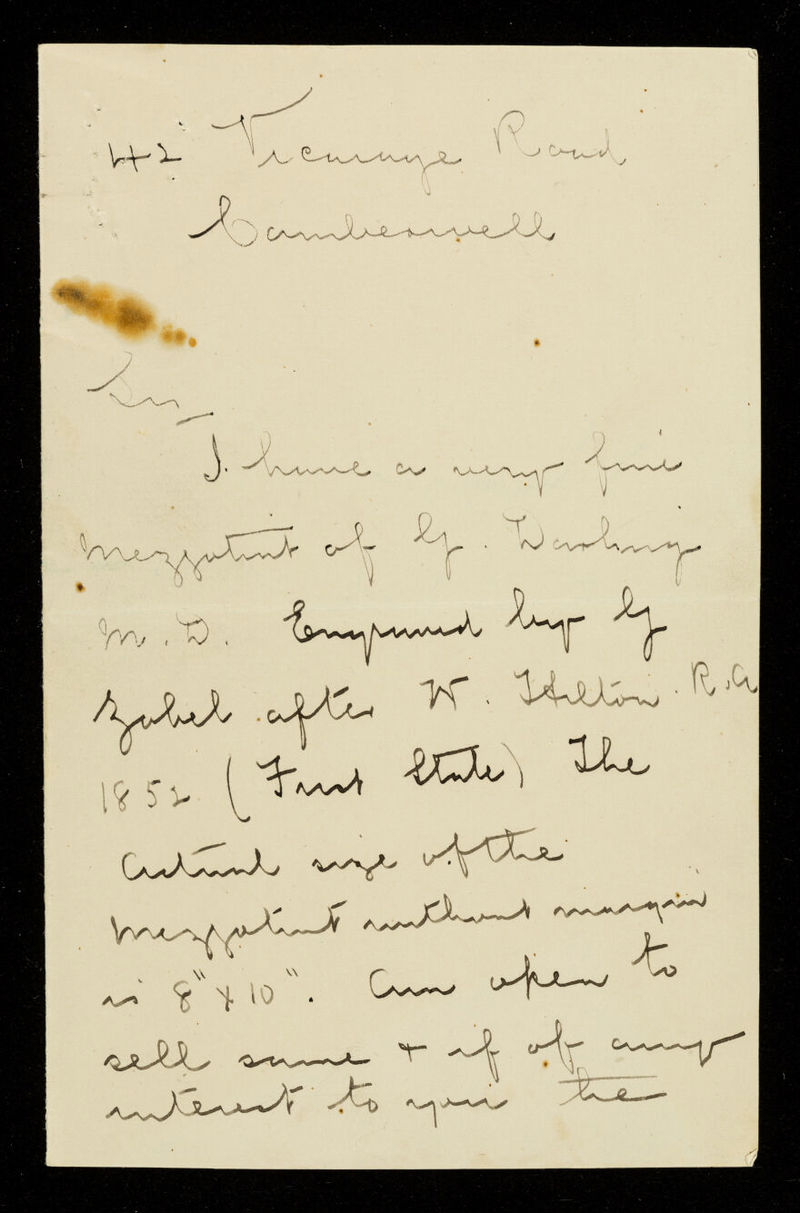 42 Vicarage Road
Camberwell
Sir,
I have a very fine
Mezzotint of G. Darling
M.D. Engraved by G
Zobel after W. Hilton R.A
1852 (First State) The
Actual size of the
Mezzotint without margin
is 8" x 10". Am open to
sell same + if of any
interest to you the